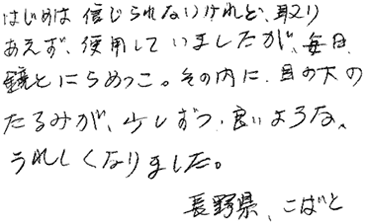 はじめは 信じられないけれど、取り
あえず、使用していましたが、毎日
鏡とにらめっこ。その内に、目の下の
たるみが、少しずつ、良いような、
うれしくなりました。
長野県、こばと